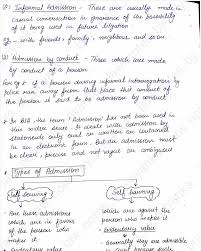 (2) Informal Admission - These are usually made in
casual conversation in ignorance of the possibility
of it being used in future litigation
Eg - with friends, family, neighbours, and even
(3) Admission by conduct - Those which are made
by conduct of a person
for eg → if a person during informal interrogation by
police ran away from that place this conduct of
the person is said to be admission by conduct
• In BSA, the term 'Admission' has not been used in
this wider sense. It deals with admission by
statements only oral or written or contained
in an electronic form. But the admission must
be clear, precise and not vague or ambiguous
• Types of Admission :
Self serving
Self harming
• are those admissions
which are in favour
of the person who
makes it
• Evidentiary value
which are against
the person who
makes it
• Evidentiary value
- Generally they are admissible